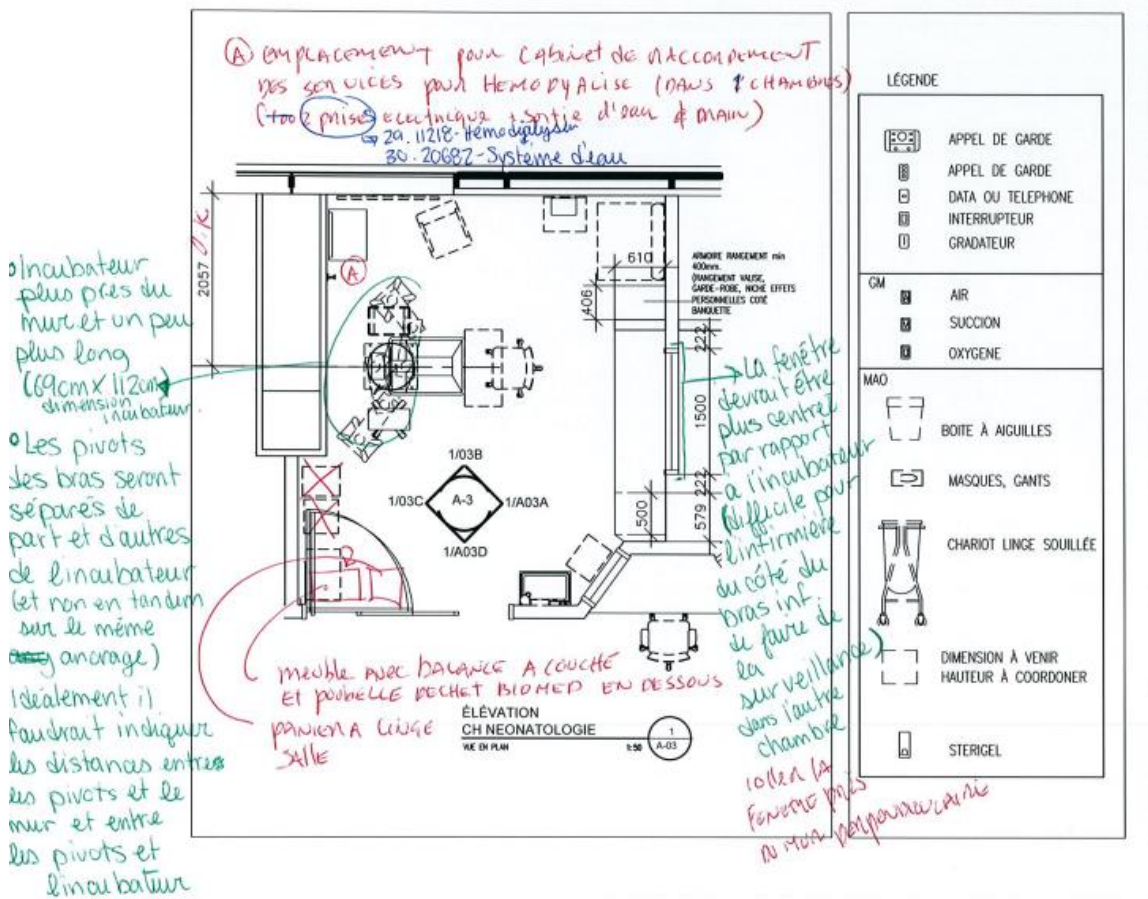 (A) EMPLACEMENT POUR CABINET DE RACCORDEMENT
DES SERVICES POUR HEMODYALISE (DANS 1 CHAMBRES)
2 prises électrique + sortie d'eau & DRAIN)
→ 29. 11218-Hémodialyseur
30. 20682-Système d'eau
2057
O.K
A
610
406
ARMOIRE RANGEMENT min
400mm.
(RANGEMENT VALISE,
GARDE-ROBE, NICHE EFFETS
PERSONNELLES COTÉ
BANQUETTE
222
1500
222
579
500
• Incubateur
plus près du
mur et un peu
plus long
(69cm X 112cm)
dimension
incubateur
• Les pivots
des bras seront
séparés de
part et d'autres
de l'incubateur
(et non en tandem
sur le même
ancrage)
idéalement il
faudrait indiquer
les distances entre
les pivots et le
mur et entre
les pivots et
l'incubateur
1/03B
1/03C
A-3
1/A03A
1/A03D
La fenêtre
devrait être
plus centrée
par rapport
à l'incubateur
(difficile pour
l'infirmière
du côté du
bras inf.
de faire de
la
surveillance)
dans l'autre
chambre
COLLER LA
FENETRE PRÈS
DU MUR PERPENDICULAIRE
MEUBLE AVEC BALANCE A COUCHÉ
ET POUBELLE DECHET BIOMED EN DESSOUS
PANIER A LINGE
SALLE
ÉLÉVATION
CH NEONATOLOGIE
VUE EN PLAN
1:50
1
A-03
LÉGENDE
APPEL DE GARDE
APPEL DE GARDE
DATA OU TELEPHONE
INTERRUPTEUR
GRADATEUR
GM
AIR
SUCCION
OXYGENE
MAO
BOITE À AIGUILLES
MASQUES, GANTS
CHARIOT LINGE SOUILLÉE
DIMENSION À VENIR
HAUTEUR À COORDONER
STERIGEL